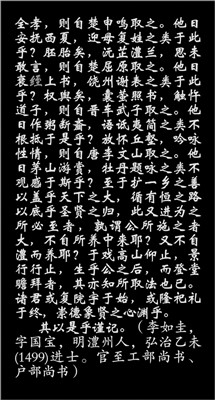 全孝，则自楚申鸣取之。他日
安抚西夏，迎母复姓之类于此
乎？胚胎矣，沅芷澧兰，思未
敢言，则自楚屈原取之。他日
衰绖上书，饶州谢表之类于此
乎？权舆矣，囊萤照书，触忤
道子，则自晋车武子取之。他
日作粥断齑，语诋夷简之类不
根抵于是乎？放怀丘壑，吟咏
性情，则自唐李文山取之。他
日茅山游赏，牡丹题咏之类不
观感于斯乎？至于扩一乡之善
以盖乎天下之大，循有恒之路
以底乎圣贤之归，此又进为之
所必至者，孰谓公所施之者
大，不自所养中来耶？又不自
澧而养耶？于戏高山仰止，景
行行止，生乎公之后，而登堂
瞻拜者，其亦知所取法也已。
诸君或复院宇于始，或隆祀礼
于终，崇德象贤之心渊乎。
其以是乎谨记。（李如圭，
字国宝，明澧州人，弘治乙未
(1499)进士。官至工部尚书、
户部尚书）